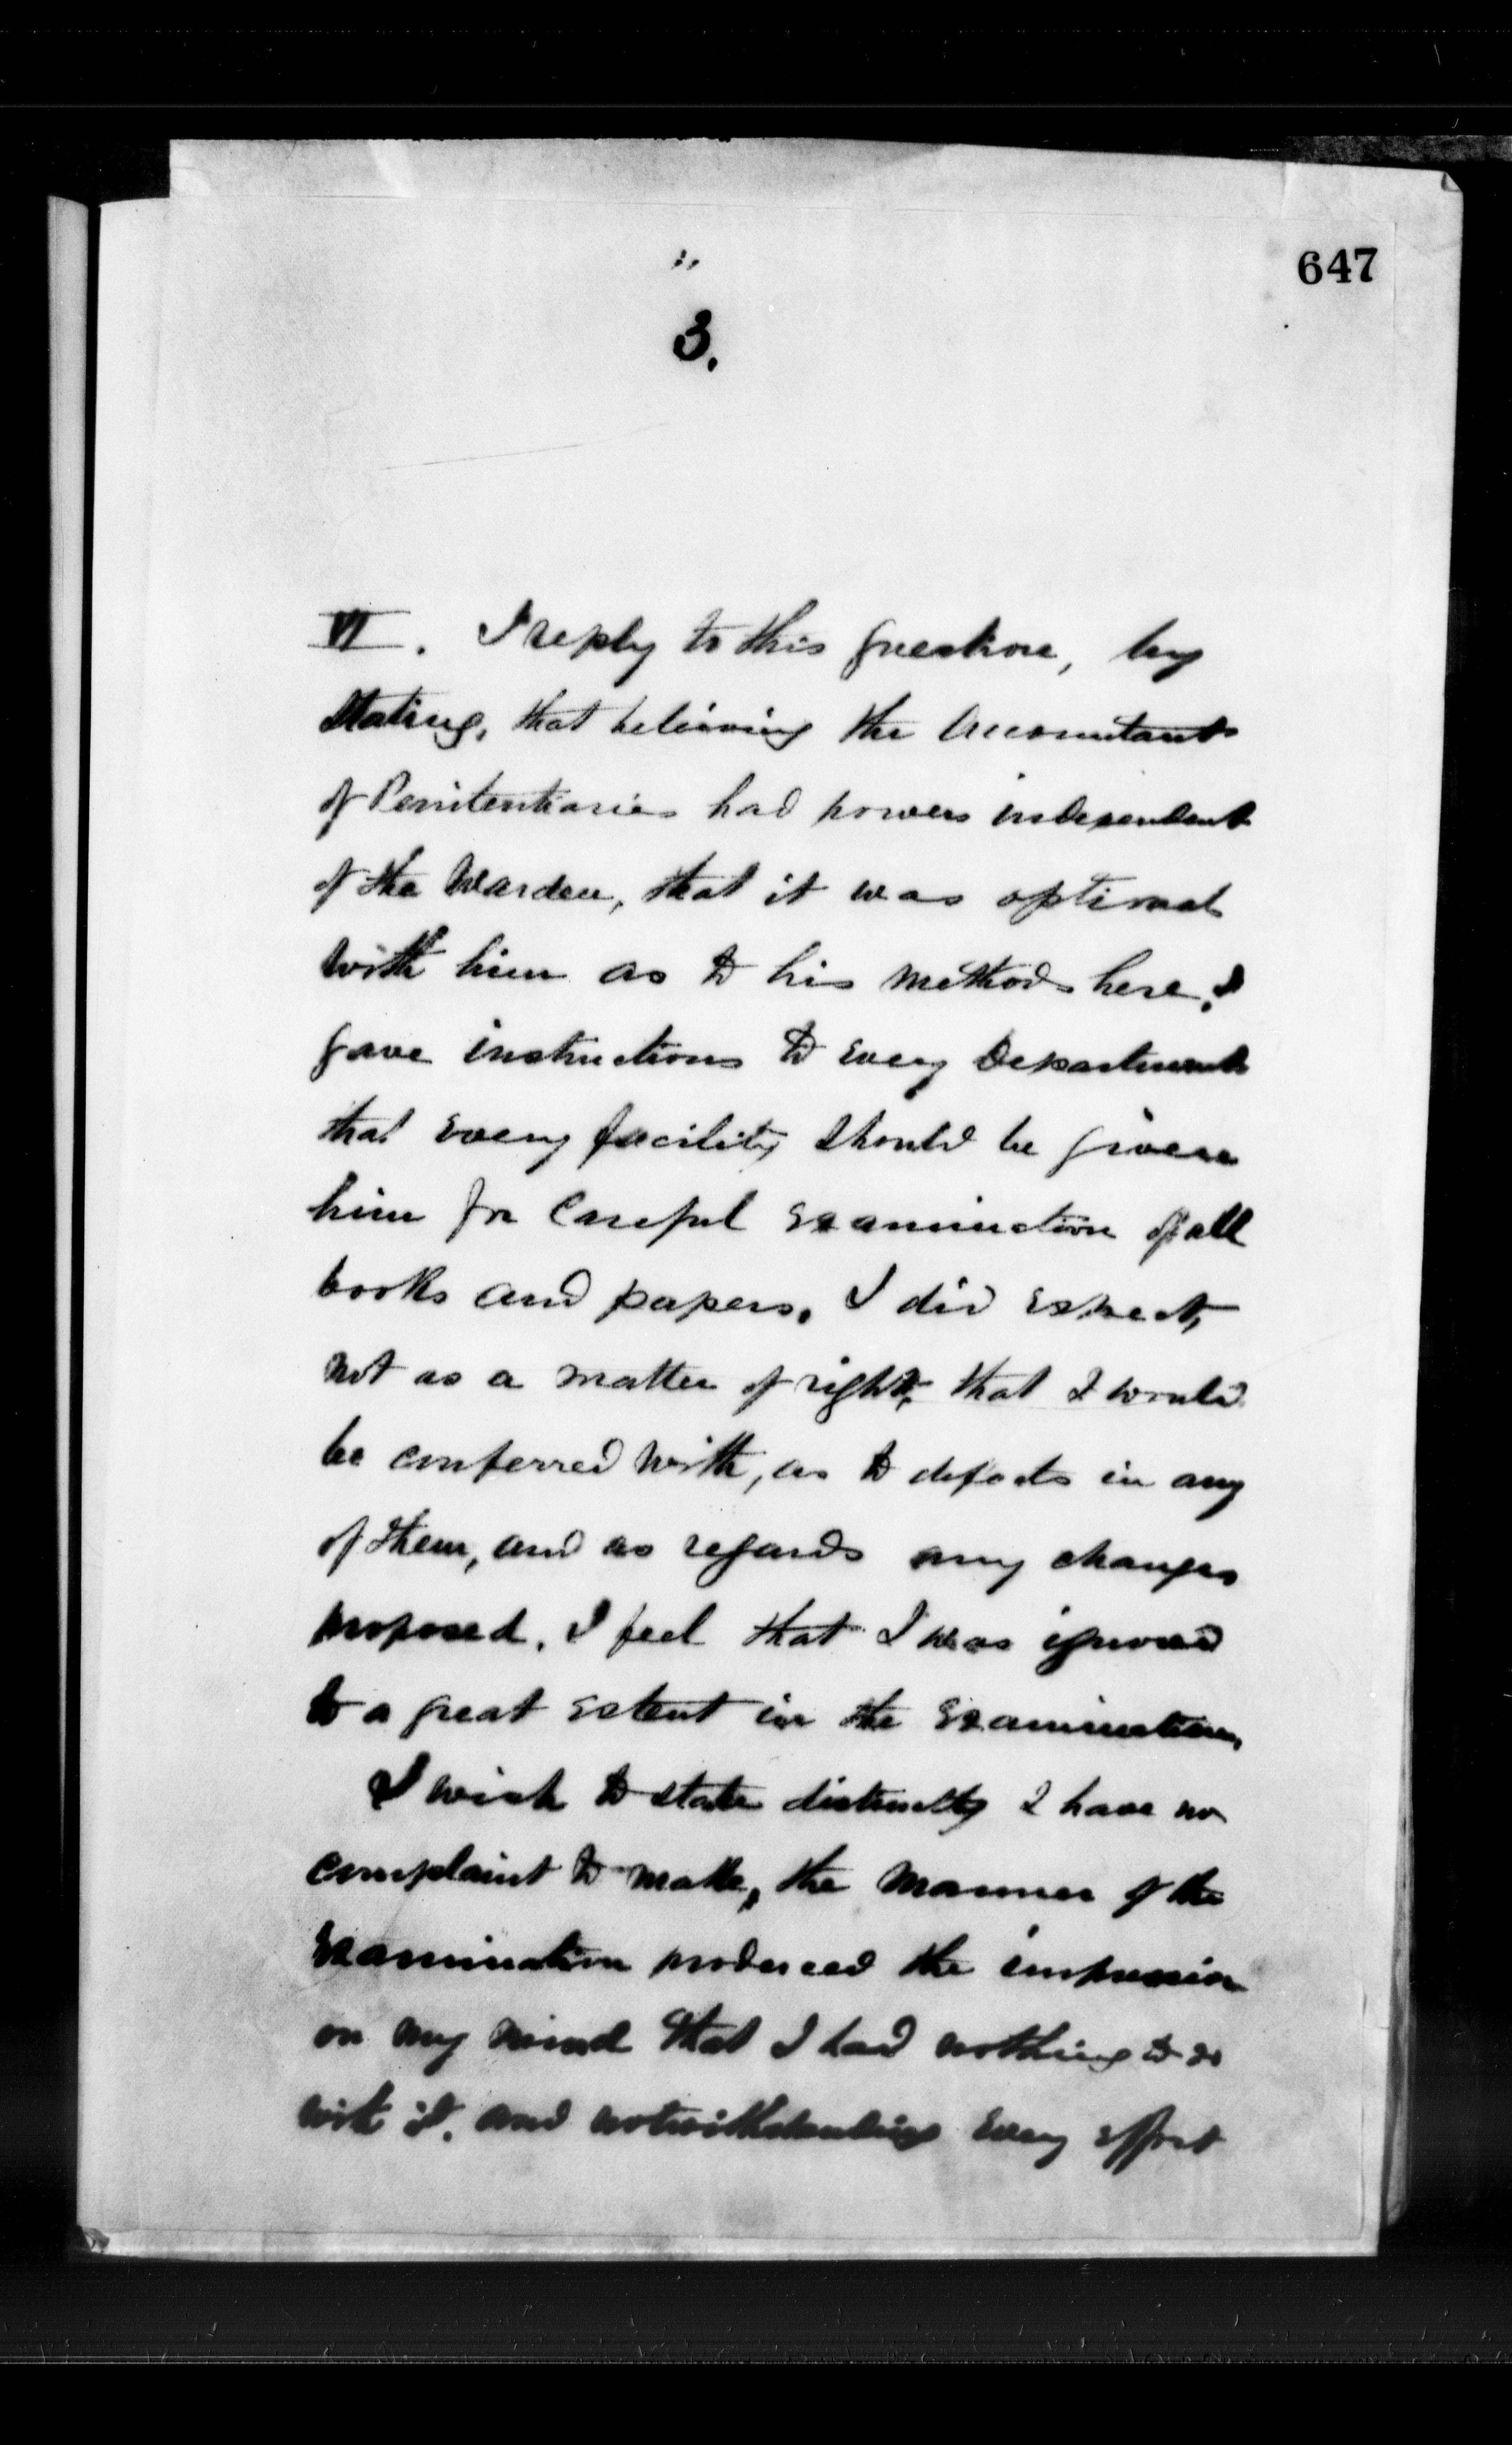 647
3.
VI. I reply to this question, by
stating, that believing the Accountant
of Penitentiaries had powers independent
of the Warden, that it was optional
with him as to his methods here, I
gave instructions to every Department
that every facility should be given
him for careful examination of all
books and papers. I did expect,
not as a matter of right, that I would
be conferred with, as to defects in any
of them, and as regards any changes
proposed. I feel that I was ignored
to a great extent in the examination,
I wish to state distinctly I have no
complaint to make, the manner of the
examination produced the impression
on my mind that I had nothing to do
with it. and notwithstanding every effort